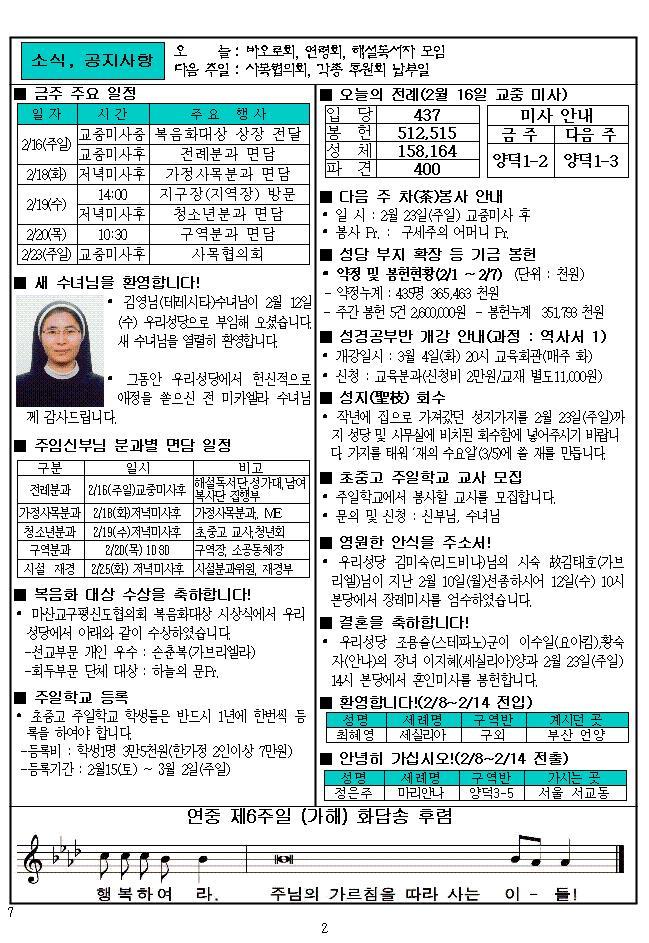 소식, 공지사항
오 늘 : 바오로회, 연령회, 해설독서자 모임
다음 주일 : 사목협의회, 각종 후원회 납부일
■ 금주 주요 일정
일 자 시 간 주 요 행 사
2/16(주일) 교중미사중 복음화대상 상장 전달
교중미사후 전례분과 면담
2/18(화) 저녁미사후 가정사목분과 면담
2/19(수) 14:00 지구장(지역장) 방문
저녁미사후 청소년분과 면담
2/20(목) 10:30 구역분과 면담
2/23(주일) 교중미사후 사목협의회
■ 새 수녀님을 환영합니다!
• 김영님(테레시타)수녀님이 2월 12일
(수) 우리성당으로 부임해 오셨습니다.
새 수녀님을 열렬히 환영합니다.
• 그동안 우리성당에서 헌신적으로
애정을 쏟으신 전 미카엘라 수녀님
께 감사드립니다.
■ 주임신부님 분과별 면담 일정
구분 일시 비고
전례분과 2/16(주일)교중미사후 해설독서단,성가대,남여
복사단 집행부
가정사목분과 2/18(화)저녁미사후 가정사목분과, ME
청소년분과 2/19(수)저녁미사후 초,중고 교사,청년회
구역분과 2/20(목) 10:30 구역장, 소공동체장
시설 재경 2/25(화) 저녁미사후 시설분과위원, 재경부
■ 복음화 대상 수상을 축하합니다!
• 마산교구평신도협의회 복음화대상 시상식에서 우리
성당에서 아래와 같이 수상하였습니다.
-선교부문 개인 우수 : 손춘복(가브리엘라)
-회두부문 단체 대상 : 하늘의 문Pr.
■ 주일학교 등록
• 초중고 주일학교 학생들은 반드시 1년에 한번씩 등
록을 하여야 합니다.
-등록비 : 학생1명 3만5천원(한가정 2인이상 7만원)
-등록기간 : 2월15(토) ~ 3월 2일(주일)
■ 오늘의 전례(2월 16일 교중 미사)
입 당 437
봉 헌 512,515
성 체 158,164
파 견 400
미사 안내
금 주 다음 주
양덕1-2 양덕1-3
■ 다음 주 차(茶)봉사 안내
• 일 시 : 2월 23일(주일) 교중미사 후
• 봉사 Pr. : 구세주의 어머니 Pr.
■ 성당 부지 확장 등 기금 봉헌
• 약정 및 봉헌현황(2/1 ~ 2/7) (단위 : 천원)
- 약정누계 : 435명 365,463 천원
- 주간 봉헌 5건 2,600,000원 - 봉헌누계 351,793 천원
■ 성경공부반 개강 안내(과정 : 역사서 1)
• 개강일시 : 3월 4일(화) 20시 교육회관(매주 화)
• 신청 : 교육분과(신청비 2만원/교재 별도11,000원)
■ 성지(聖枝) 회수
• 작년에 집으로 가져갔던 성지가지를 2월 23일(주일)까
지 성당 및 사무실에 비치된 회수함에 넣어주시기 바랍니
다. 가지를 태워 '재의 수요일'(3/5)에 쓸 재를 만듭니다.
■ 초중고 주일학교 교사 모집
• 주일학교에서 봉사할 교사를 모집합니다.
• 문의 및 신청 : 신부님, 수녀님
■ 영원한 안식을 주소서!
• 우리성당 김미숙(리드비나)님의 시숙 故김태호(가브
리엘)님이 지난 2월 10일(월)선종하시어 12일(수) 10시
본당에서 장례미사를 엄수하였습니다.
■ 결혼을 축하합니다!
• 우리성당 조용술(스테파노)군이 이수일(요아킴),황숙
자(안나)의 장녀 이지혜(세실리아)양과 2월 23일(주일)
14시 본당에서 혼인미사를 봉헌합니다.
■ 환영합니다!(2/8~2/14 전입)
성명 세례명 구역반 계시던 곳
최혜영 세실리아 구외 부산 언양
■ 안녕히 가십시오!(2/8~2/14 전출)
성명 세례명 구역반 가시는 곳
정은주 마리안나 양덕3-5 서울 서교동
연중 제6주일 (가해) 화답송 후렴
행 복 하 여 라. 주님의 가르침을 따라 사는 이 - 들!
7
2